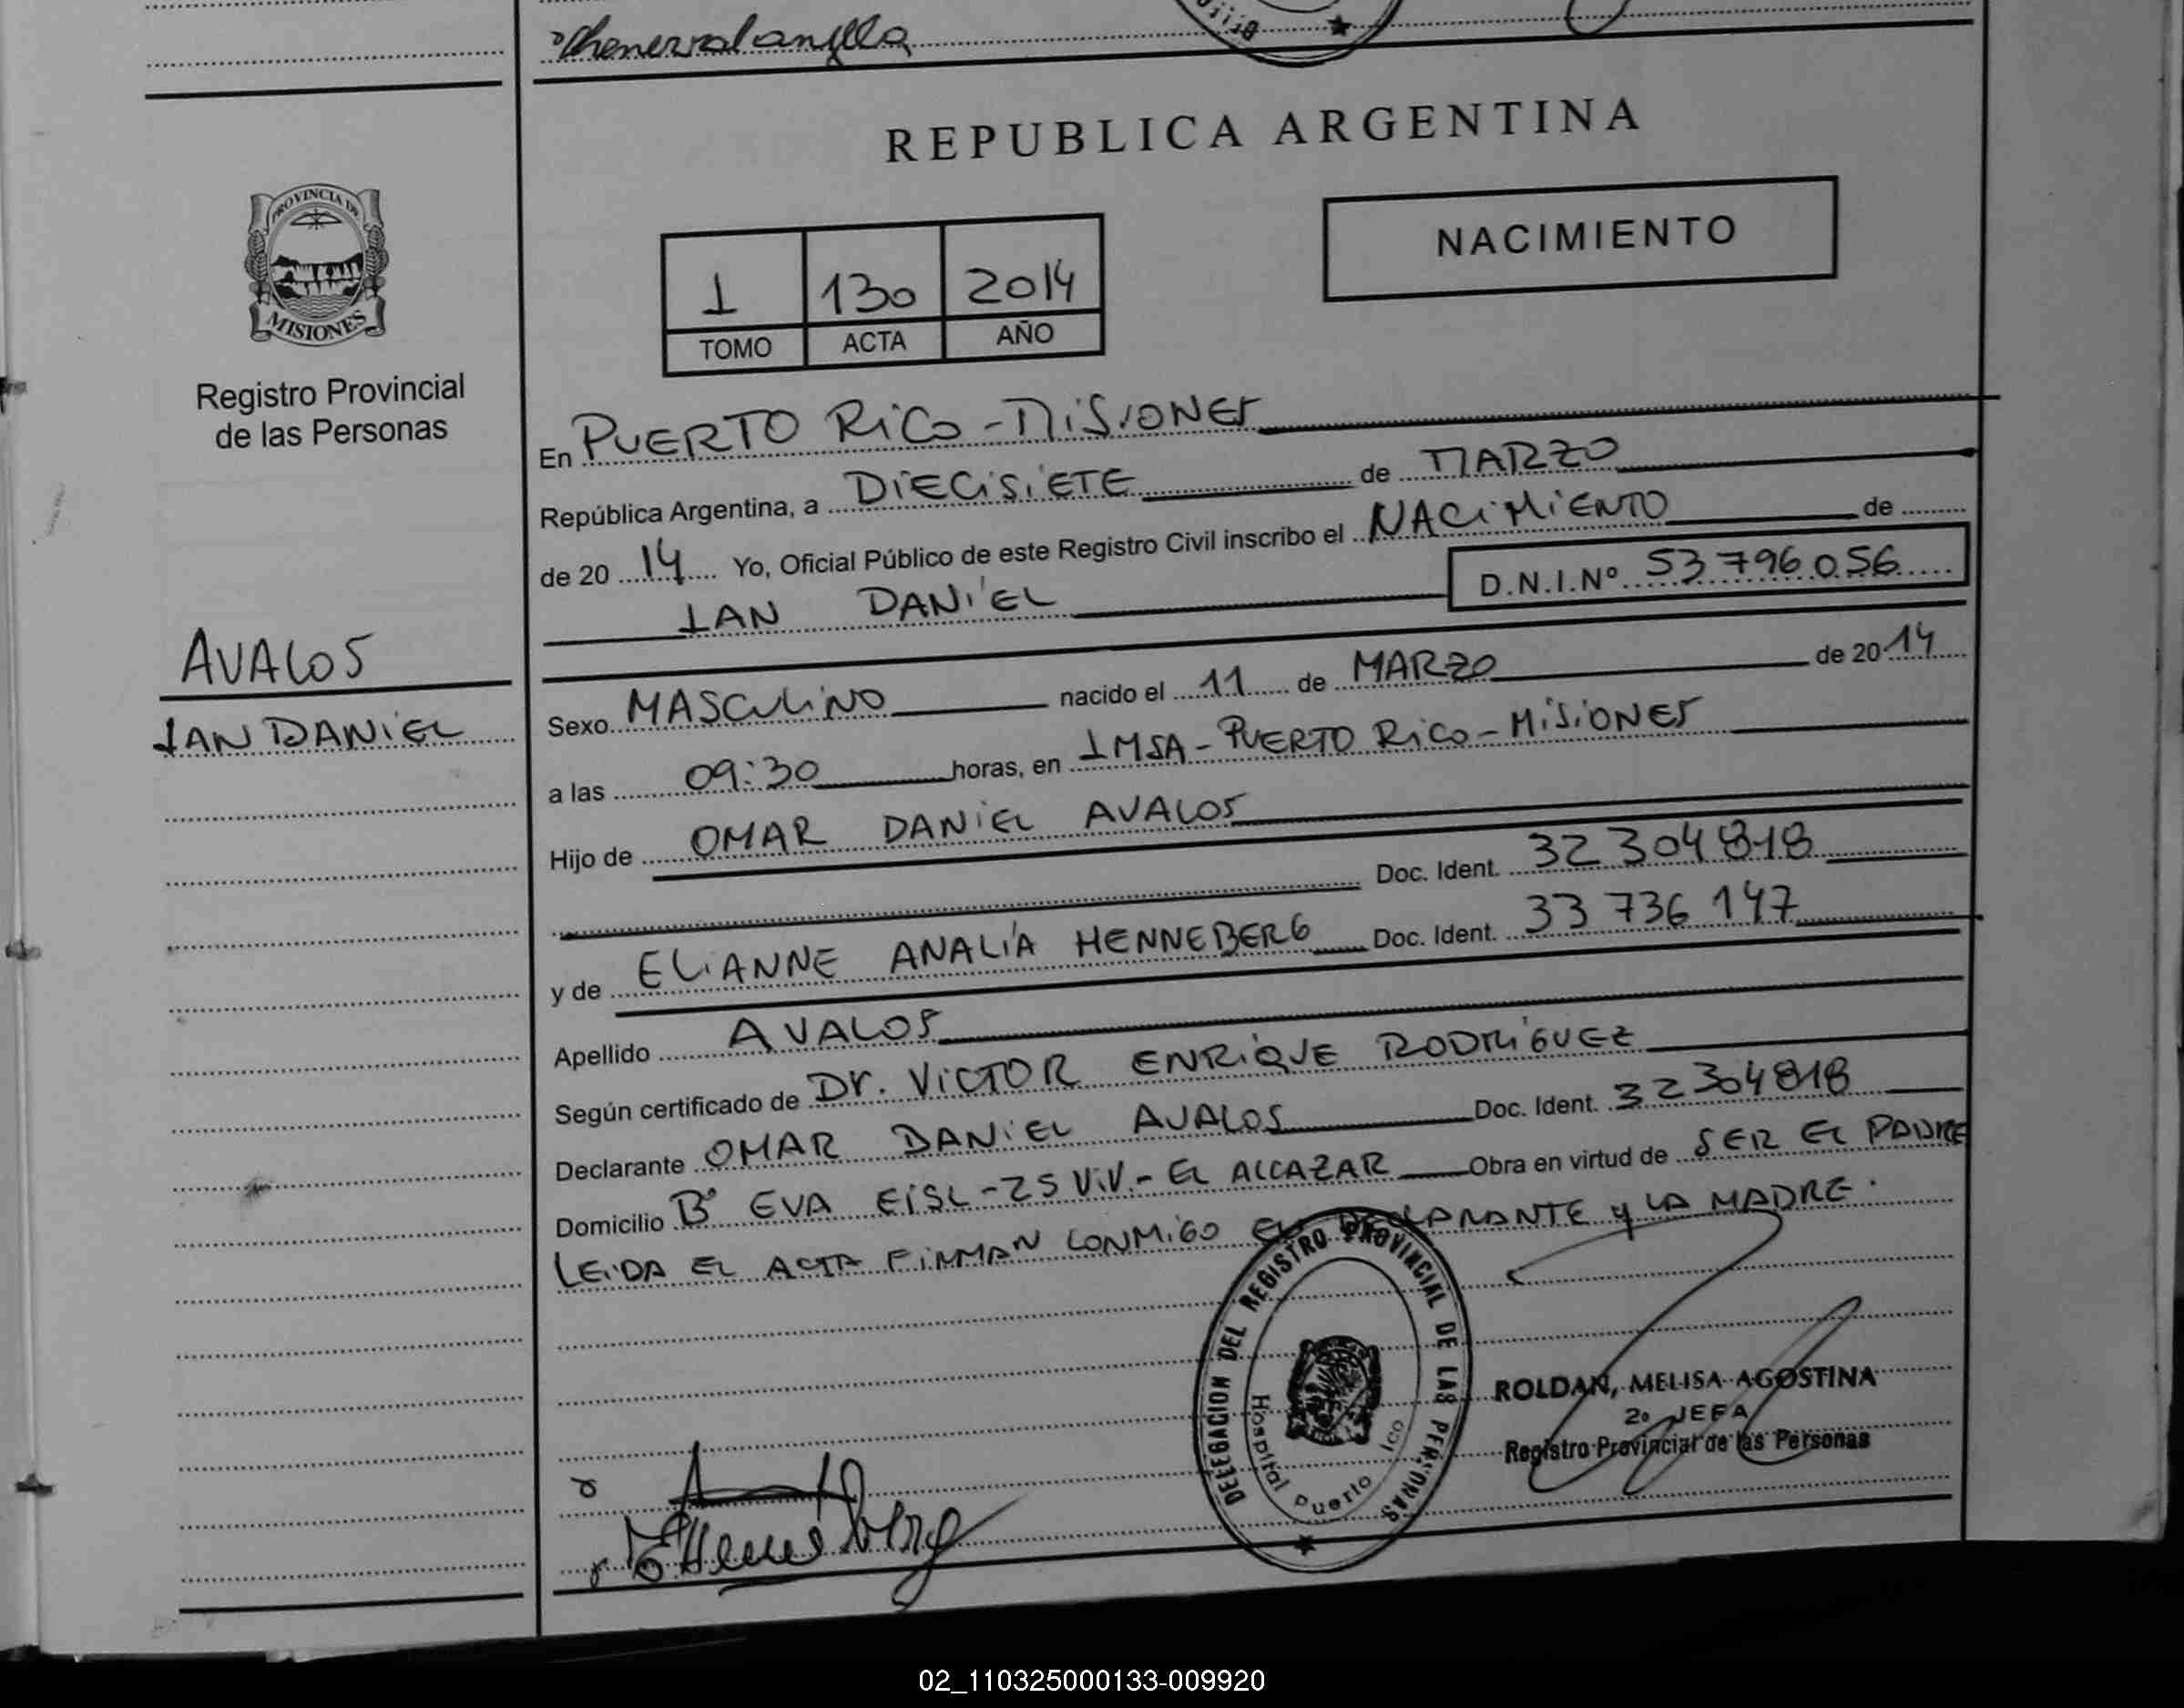 REPUBLICA ARGENTINA
PROVINCIA DE
MISIONES
Registro Provincial
de las Personas
NACIMIENTO
1 130 2014
TOMO ACTA AÑO
En PUERTO RICO - MISIONES
República Argentina, a DIECISIETE de MARZO
de 20 14 Yo, Oficial Público de este Registro Civil inscribo el NACIMIENTO de
IAN DANIEL D.N.I.Nº 53796056
AVALOS
IAN DANIEL
Sexo MASCULINO nacido el 11 de MARZO de 20 14
a las 09:30 horas, en IMSA - PUERTO RICO - MISIONES
Hijo de OMAR DANIEL AVALOS
Doc. Ident. 32304818
y de ELIANNE ANALÍA HENNEBERG Doc. Ident. 33736147
Apellido AVALOS
Según certificado de Dr. VICTOR ENRIQUE RODRÍGUEZ
Declarante OMAR DANIEL AVALOS Doc. Ident. 32304818
Domicilio Bº EVA EISL - 25 VIV. - EL ALCAZAR Obra en virtud de SER EL PADRE
LEIDA EL ACTA FIRMAN CONMIGO EL DECLARANTE y LA MADRE.
DELEGACION DEL REGISTRO PROVINCIAL DE LAS PERSONAS
Hospital Puerto
ROLDAN, MELISA AGOSTINA
2º JEFA
Registro Provincial de las Personas
02_110325000133-009920